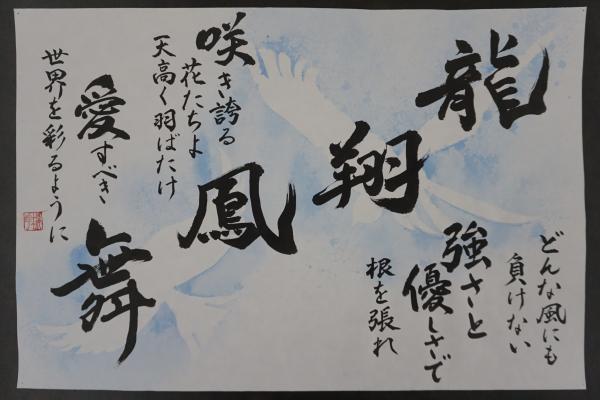 龍
翔
鳳
舞
どんな風にも
負けない
強さと
優しさで
根を張れ
咲き誇る
花たちよ
天高く羽ばたけ
愛すべき
世界を彩るように